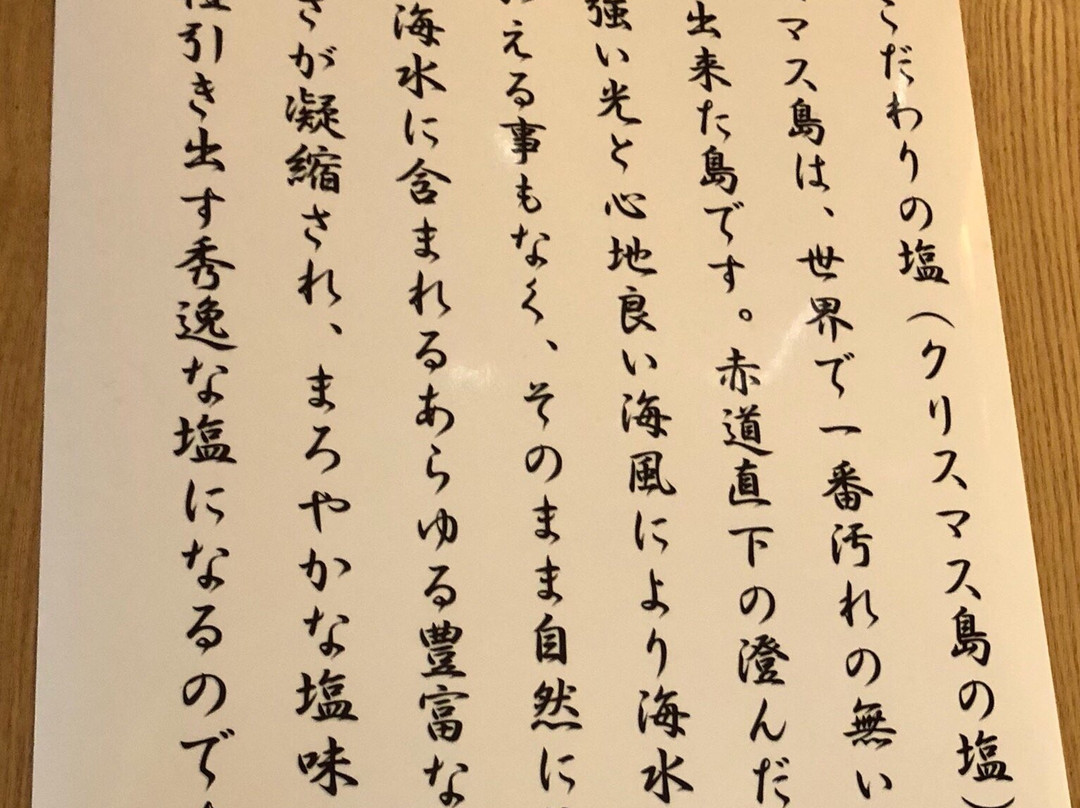 だわりの塩(クリスマス島の塩)
マス島は、世界で一番汚れの無い
出来た島です。赤道直下の澄んだ
強い光と心地良い海風により海水
える事もなく、そのまま自然に
海水に含まれるあらゆる豊富な
さが凝縮され、まろやかな塩味
引き出す秀逸な塩になるので